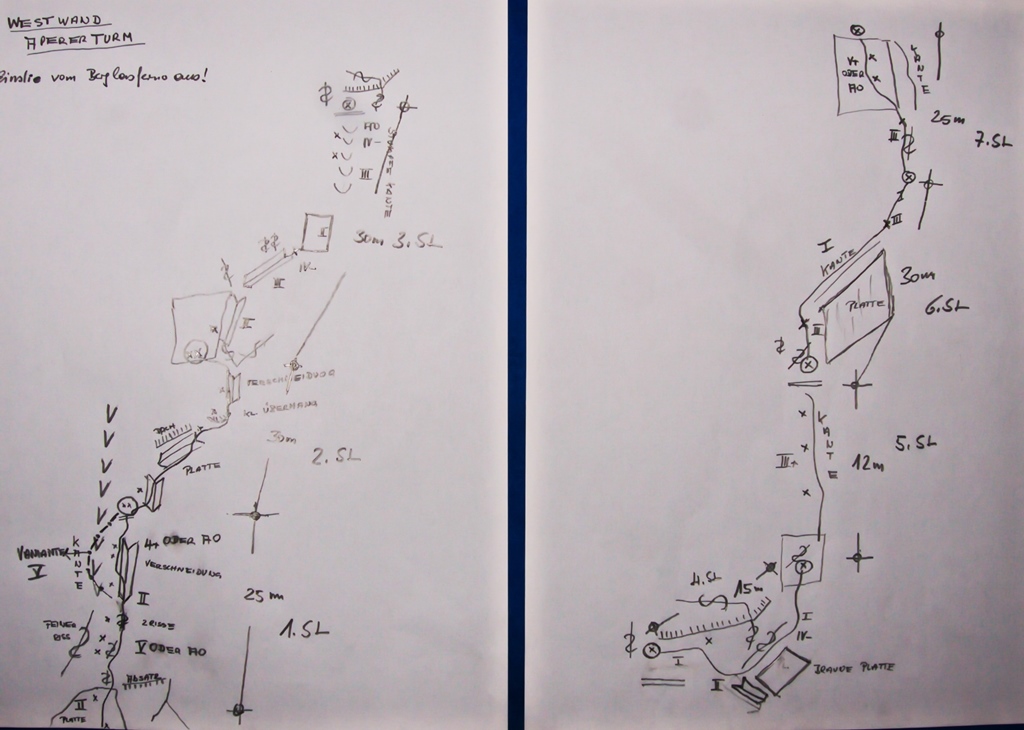 WESTWAND
APERER TURM
vom
aus!
A0
IV-
III
KANTE
II
30m 3.SL
IV-
III
II
KL. ÜBERHANG
DACH
30m
2.SL
PLATTE
4+ ODER A0
VERSCHNEIDUNG
VARIANTE
V
KANTE
II
25m
1.SL
FEINER
RISS
2 RISSE
V ODER A0
ABSATZ
III
PLATTE
V+
ODER
A0
KANTE
25m
7.SL
III
III
I
KANTE
30m
PLATTE
6.SL
III
KANTE
5.SL
III+
12m
4.SL
15m
I
IV-
I
II
BRAUNE PLATTE